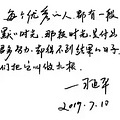 每个优秀的人，都有一段
默的时光。那段时光，是付出
多努力，却得不到结果的日子
们把它叫做扎根。
2019.7.10